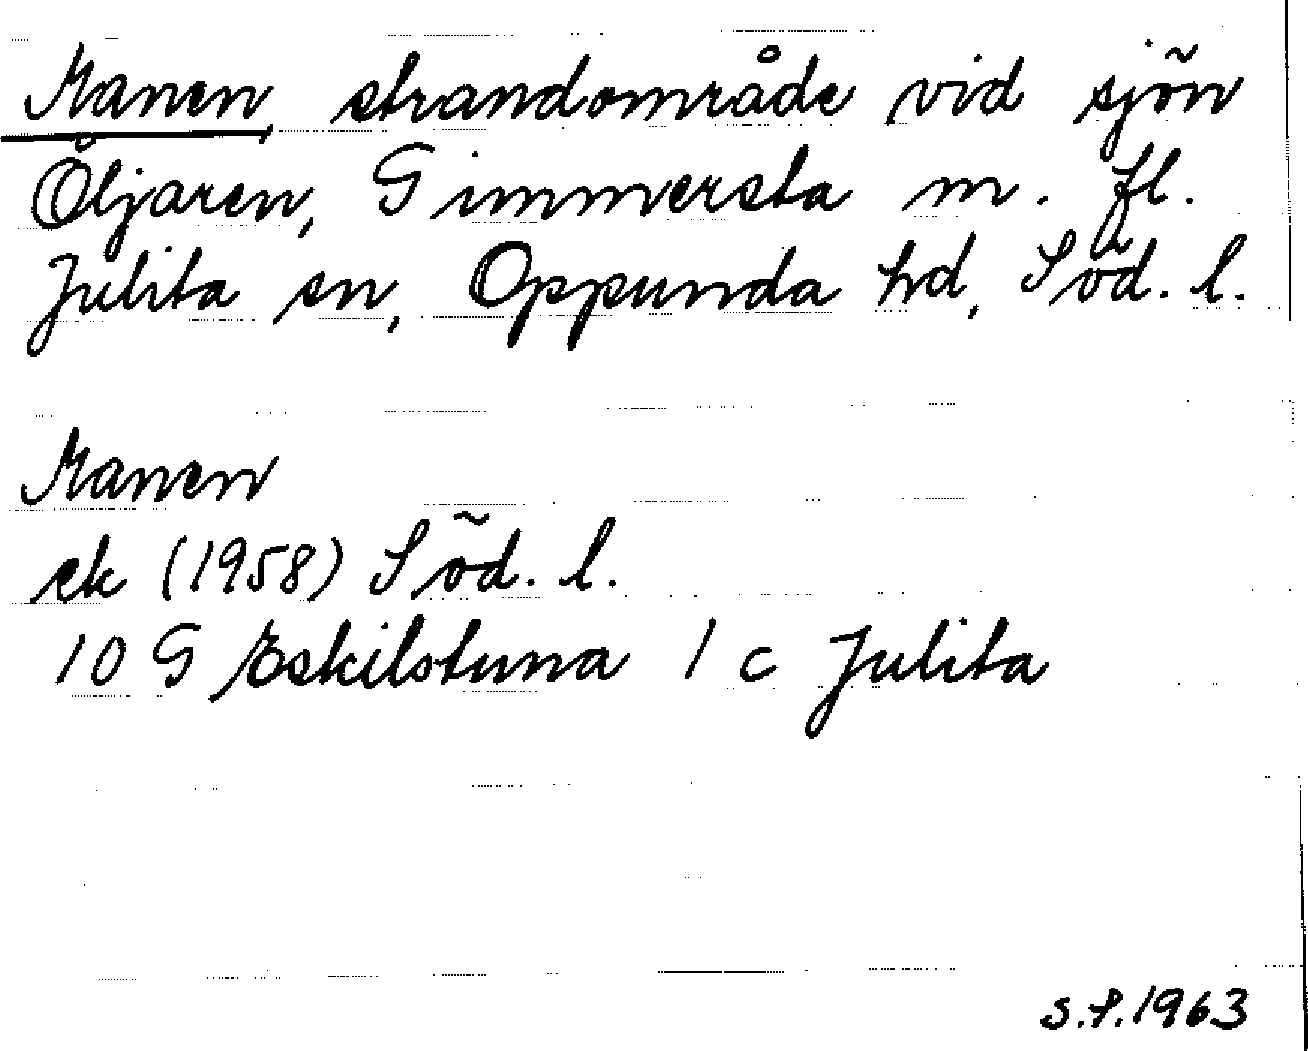 Manen, strandområde vid sjön
Öljaren, Gimmersta m. fl.
Julita sn, Oppunda hd, Söd. l.
Manen
ek (1958) Söd. l.
10 G Eskilstuna 1 c Julita
S.P. 1963